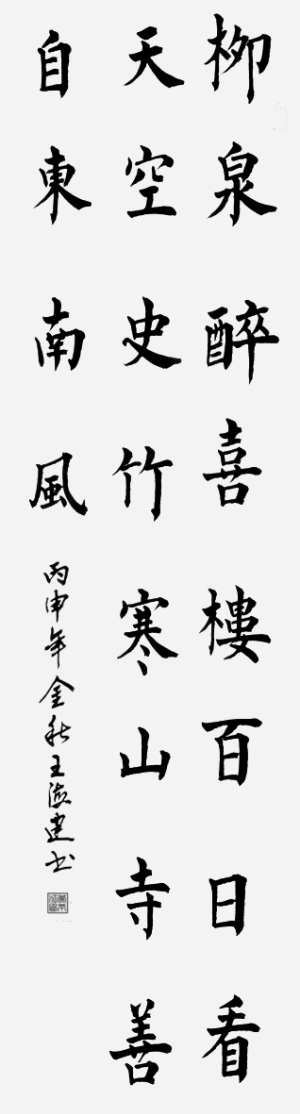 柳泉醉喜樓百日看
天空史竹寒山寺善
自東南風
丙申年金秋王德建书